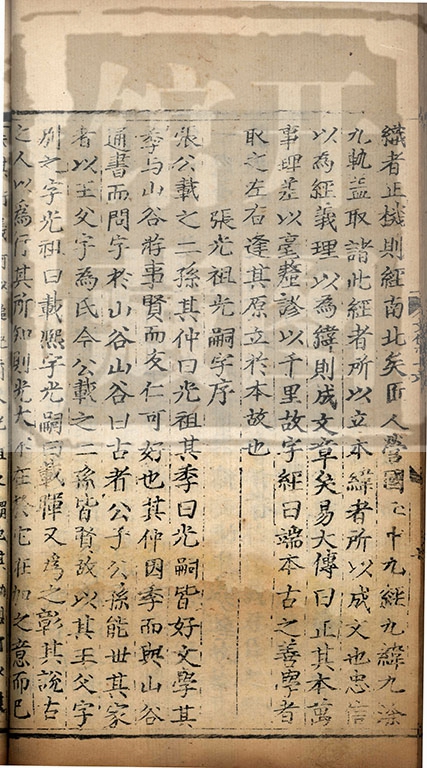 織者正機則經南北矣匠人營國國中九經九緯九涂
九軌盖取諸此經者所以立本緯者所以成文也忠信
以為經義理以為緯則成文章矣易大傳曰正其本萬
事理差以毫釐謬以千里故字經曰端本古之善學者
取之左右逢其原立於本故也
張光祖光嗣字序
張公載之二孫其仲曰光祖其季曰光嗣皆好文學其
季与山谷游事賢而友仁可好也其仲因季而與山谷
通書而問字於山谷山谷曰古者公子公孫能世其家
者以王父字為氏今公載之二孫皆賢故以其王父字
別之字光祖曰載熙字光嗣曰載暉又為之彰其說古
之人以為行其所知則光大不在於它在加之意而已